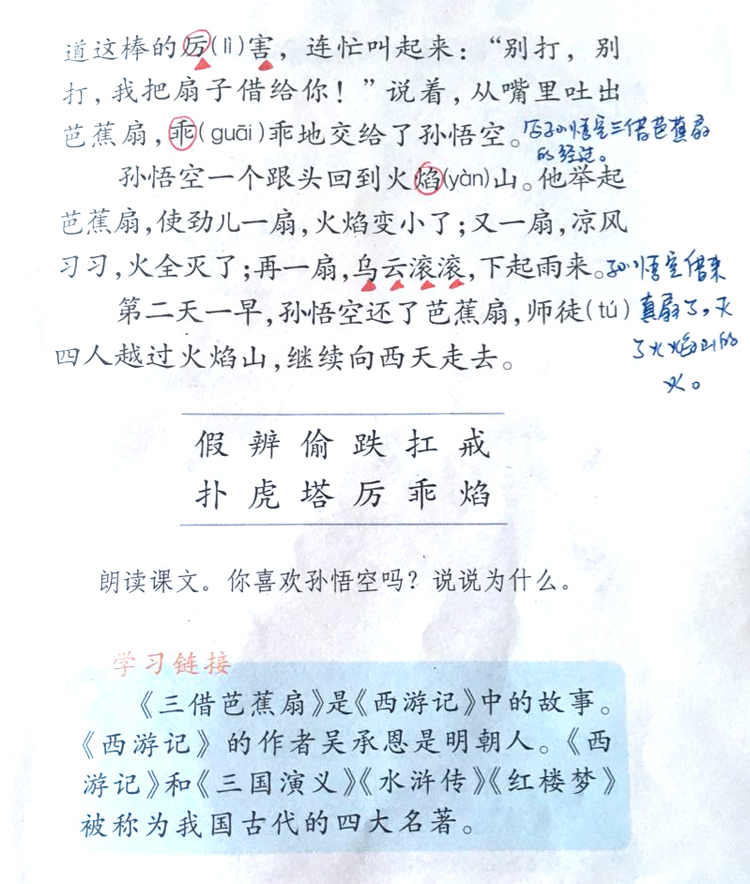 道这棒的厉(lì)害，连忙叫起来：“别打，别
打，我把扇子借给你！”说着，从嘴里吐出
芭蕉扇，乖(guāi)乖地交给了孙悟空。
写孙悟空三借芭蕉扇
的经过。
孙悟空一个跟头回到火焰(yàn)山。他举起
芭蕉扇，使劲儿一扇，火焰变小了；又一扇，凉风
习习，火全灭了；再一扇，乌云滚滚，下起雨来。
孙悟空借来
真扇子，灭
了火焰山的
火。
第二天一早，孙悟空还了芭蕉扇，师徒(tú)
四人越过火焰山，继续向西天走去。
假 辨 偷 跌 扛 戒
扑 虎 塔 厉 乖 焰
朗读课文。你喜欢孙悟空吗？说说为什么。
学习链接
《三借芭蕉扇》是《西游记》中的故事。
《西游记》的作者吴承恩是明朝人。《西
游记》和《三国演义》《水浒传》《红楼梦》
被称为我国古代的四大名著。